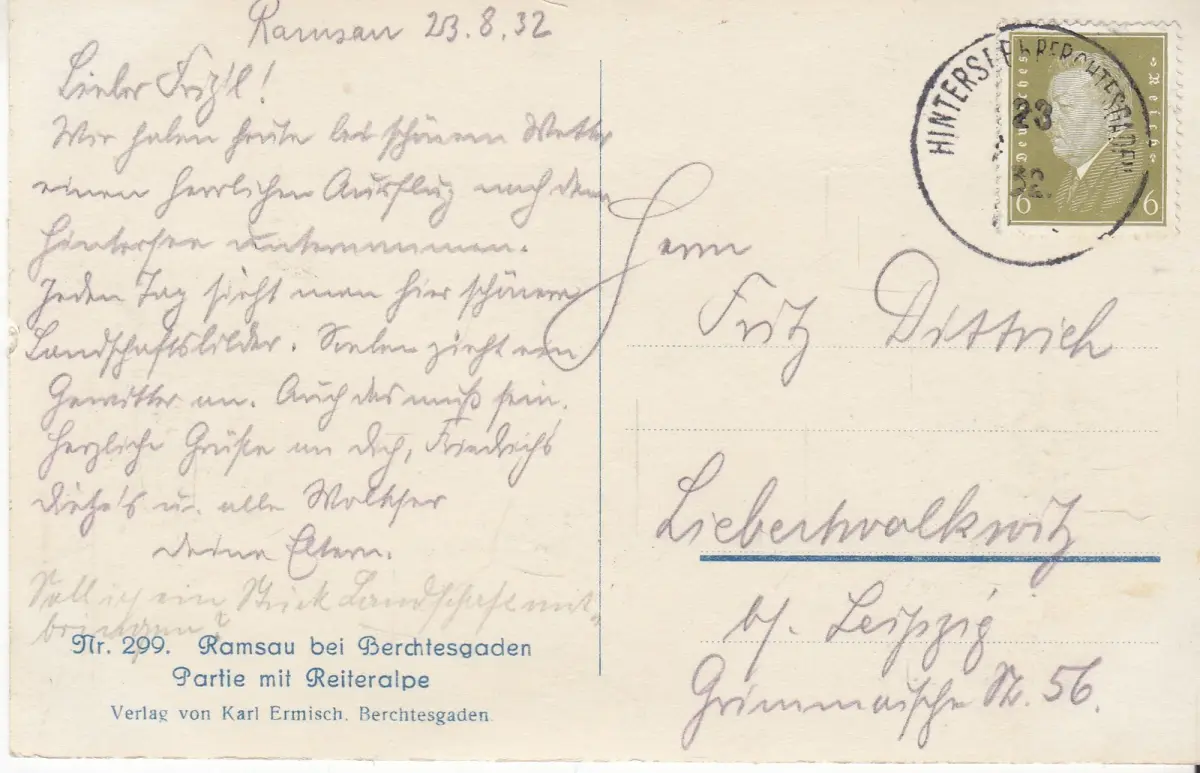 Ramsau 23.8.32
Lieber Fritz'l!
Wir haben heute bei schönem Wetter
einen herrlichen Ausflug nach dem
Hintersee unternommen.
Jeden Tag sieht man hier schönere
Landschaftsbilder. Soeben zieht ein
Gewitter an. Auch das muß sein.
Herzliche Grüße an Dich, Friedrichs
u. alle Wolkser
Deine Eltern.
Soll ich ein Stück Landschaft mit
bringen?
Nr. 299. Ramsau bei Berchtesgaden
Partie mit Reiteralpe
Verlag von Karl Ermisch, Berchtesgaden.
HINTERSEE BERCHTESGADEN
23
32
Deutsches Reich
6 6
Herrn
Fritz Dittrich
Liebertwolkwitz
b/. Leipzig
Grimmaische Str. 56.